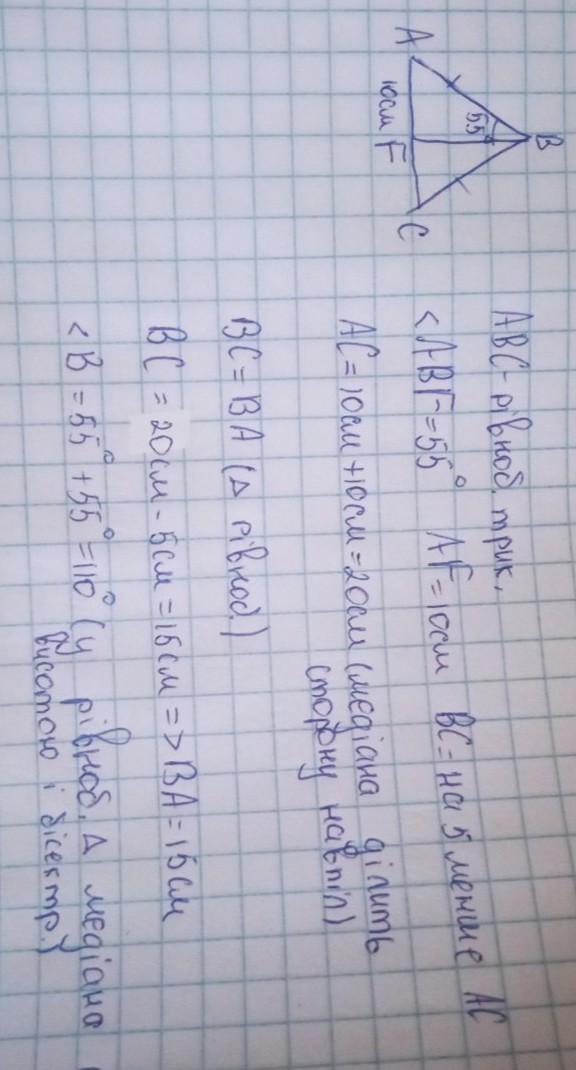 B
55°
A
10см
F
C
ABC - рівноб. трик.
<ABF=55° AF=10см BC= на 5 менше AC
AC=10см+10см=20см (медіана ділить
сторону навпіл)
BC=BA (Δ рівноб.)
BC=20см-5см=15см=>BA=15см
<B=55°+55°=110° (у рівноб. Δ медіана
висотою і бісектр.)